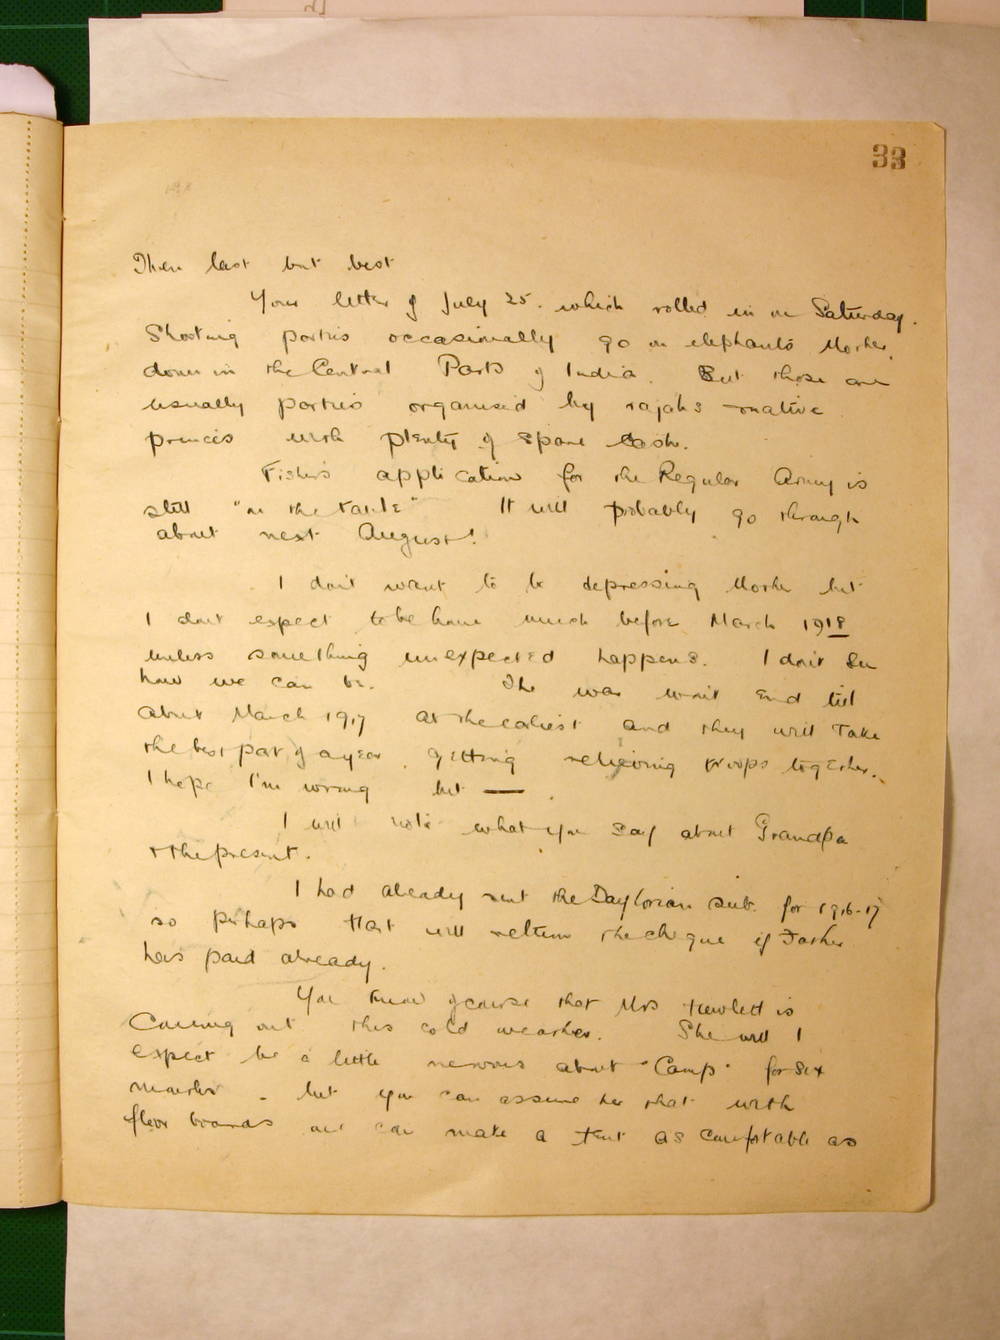 33
Then last but best
Your letter of July 25. which rolled in on Saturday.
Shooting parties occasionally go on elephants Mother,
down in the Central Parts of India. But those are
usually parties organised by rajahs - native
princes with plenty of spare cash.
Fisher's application for the Regular Army is
still "on the table" It will probably go through
about next August!
I don't want to be depressing Mother but
I don't expect to be home much before March 1918
unless something unexpected happens. I don't see
how we can be. The war won't end till
about March 1917 at the earliest and they will take
the best part of a year getting relieving troops together.
I hope I'm wrong but —
I will note what you say about Grandpa
+ the present.
I had already sent the Daylorian sub. for 1916-17
so perhaps that will return the cheque if Father
has paid already.
You know of course that Mrs Hewlett is
Coming out this cold weather. She will I
expect be a little nervous about "Camp" for six
months - but you can assure her that with
floor boards one can make a tent as comfortable as